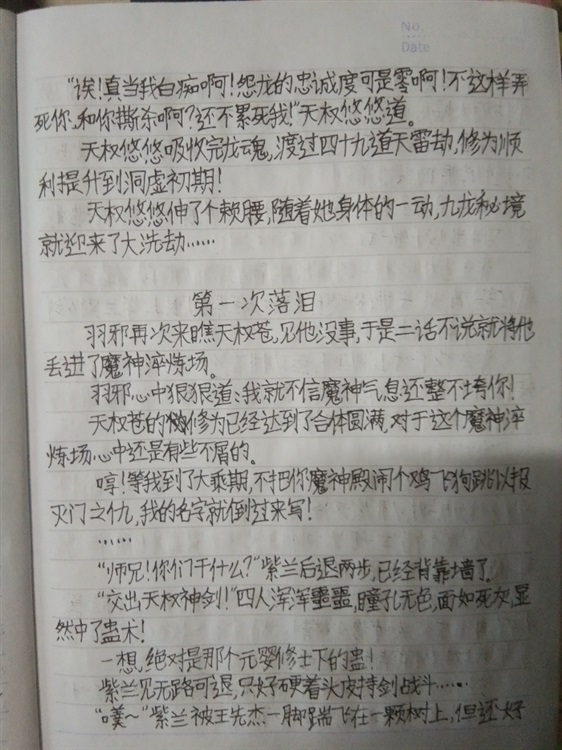 No.
Date
“诶！真当我白痴啊！怨龙的忠诚度可是零啊！不这样弄
死你、和你撕杀啊？还不累死我！”天权悠悠道。
天权悠悠吸收完龙魂，渡过四十九道天雷劫，修为顺
利提升到洞虚初期！
天权悠悠伸了个赖腰，随着她身体的一动，九龙秘境
就迎来了大洗劫……
第一次落泪
羽邪再次来瞧天权苍，见他没事，于是二话不说就将他
丢进了魔神淬炼场。
羽邪心中狠狠道：我就不信魔神气息还整不垮你！
天权苍的修为已经达到了合体圆满，对于这个魔神淬
炼场心中还是有些不屑的。
哼！等我到了大乘期，不把你魔神殿闹个鸡飞狗跳以报
灭门之仇，我的名字就倒过来写！
……
“师兄！你们干什么？”紫兰后退两步，已经背靠墙了。
“交出天权神剑！”四人浑浑噩噩，瞳孔无色，面如死灰，显
然中了蛊术！
一想，绝对是那个元婴修士下的蛊！
紫兰见无路可退，只好硬着头皮持剑战斗……
“噗～”紫兰被王先杰一脚踹飞在一颗树上，但还好